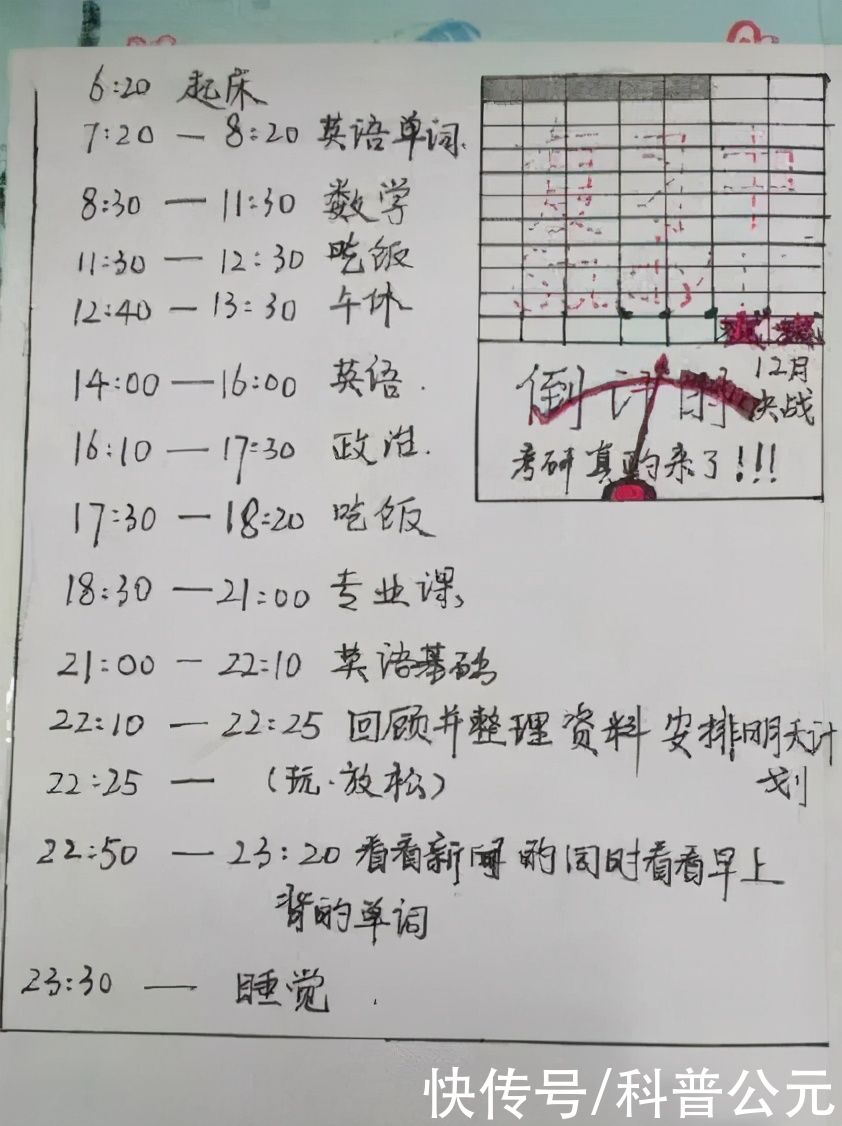 6:20 起床
7:20 — 8:20 英语单词.
8:30 — 11:30 数学
11:30 — 12:30 吃饭
12:40 — 13:30 午休
14:00 — 16:00 英语.
16:10 — 17:30 政治.
17:30 — 18:20 吃饭
18:30 — 21:00 专业课
21:00 — 22:10 英语基础
22:10 — 22:25 回顾并整理资料 安排明天计
划
22:25 — (玩·放松)
22:50 — 23:20 看看新闻的同时看看早上
背的单词
23:30 — 睡觉.
倒计时
12月
决战
考研真的来了!!!
快传号/科普公元